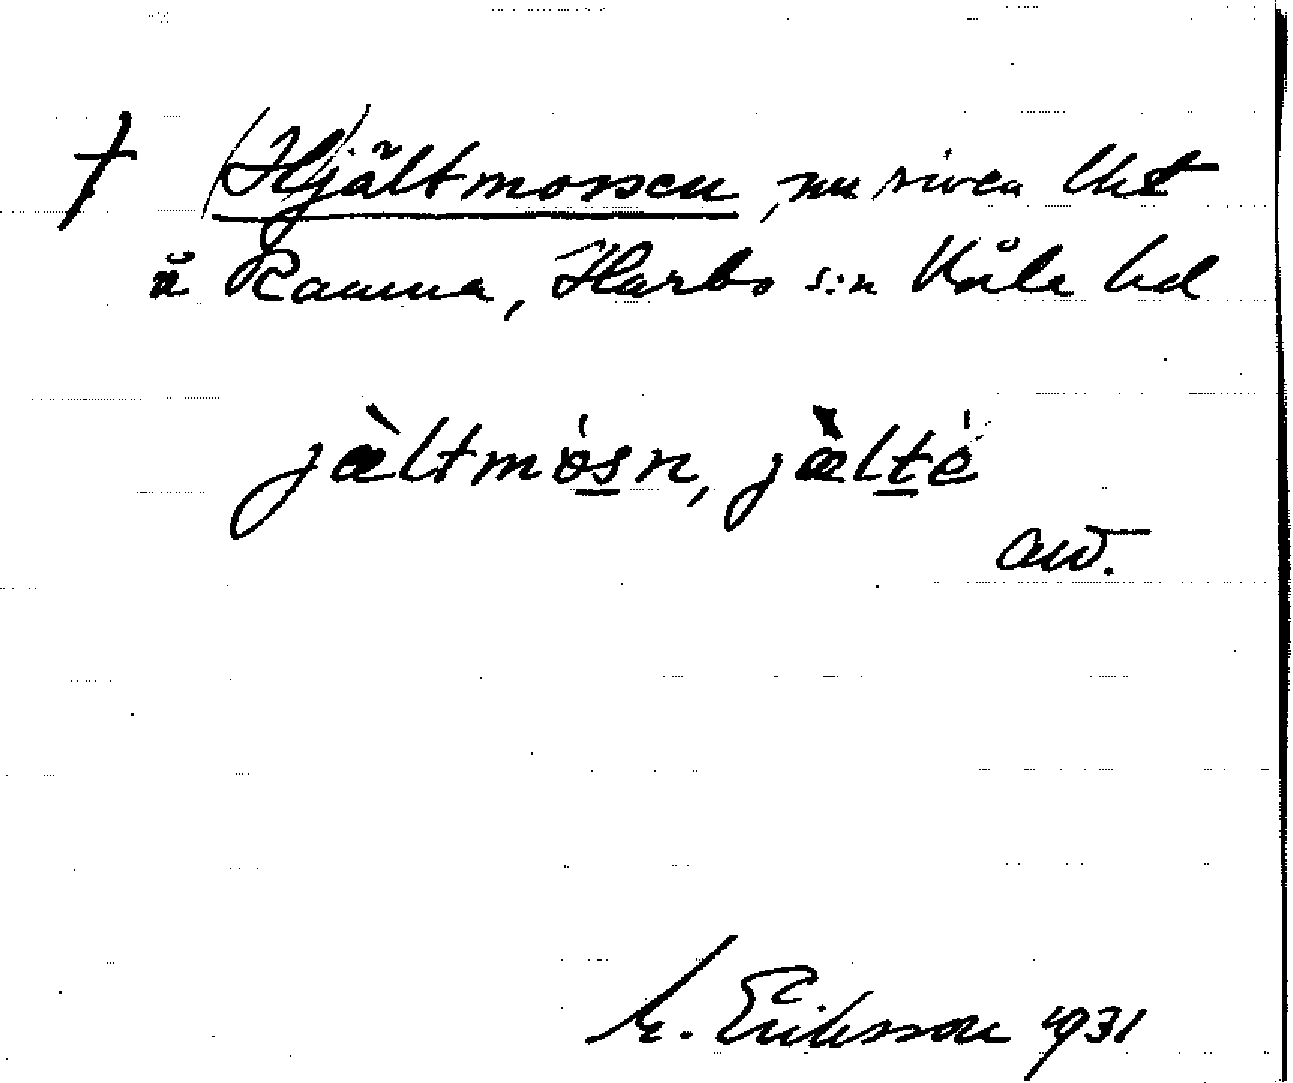 † (Hj)ältmossen, nu riven lht
å Ramna, Harbo s:n Våla hd
jæ̀ltmósn, jæ̀lté
avd.
M. Eriksson 1931